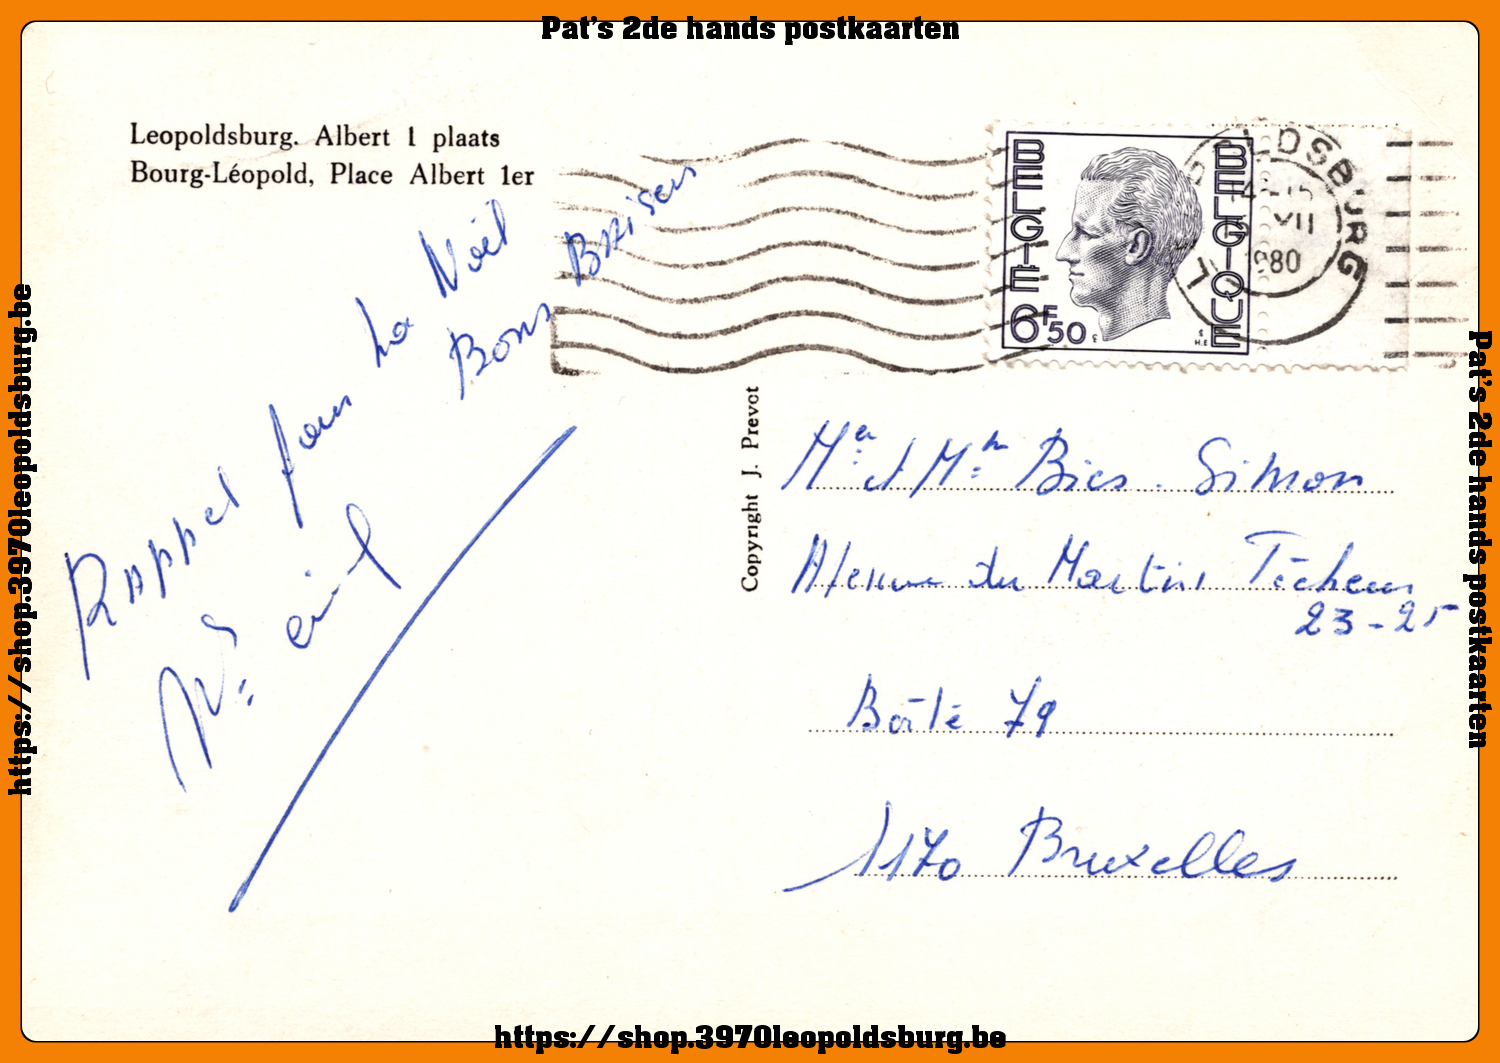 Pat's 2de hands postkaarten
Leopoldsburg. Albert 1 plaats
Bourg-Léopold, Place Albert 1er
Rappel pour la Noël
Bons Baisers
BELGIE
BELGIQUE
6F50
LDSBURG
VII
1980
L
Copyright J. Prevot
Mr et Me Bies. Simon
Avenue du Martin Pêcheur
23-25
Boîte 79
1170 Bruxelles
https://shop.3970leopoldsburg.be
Pat's 2de hands postkaarten
https://shop.3970leopoldsburg.be